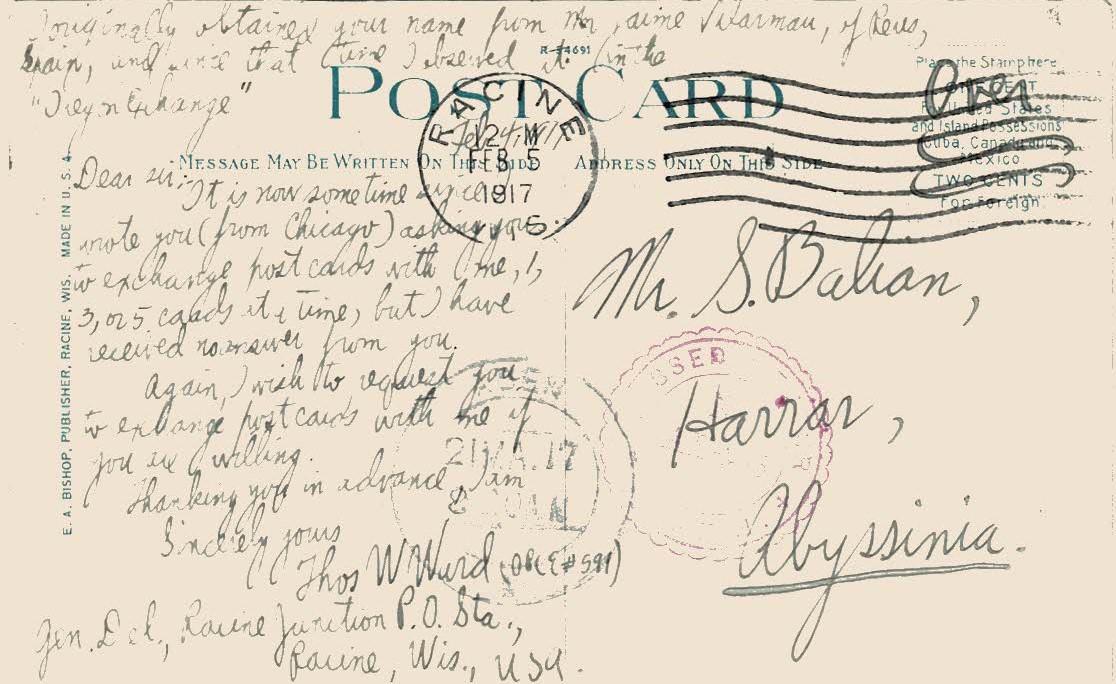 I originally obtained your name from Mr Jaime of Reus,
Spain, and since that time I observed it in the
"Oreyn Exchange"
R-54691
POST CARD
Over
Place the Stamp here
United States
and Island Possessions
Cuba, Canada and
Mexico
TWO CENTS
For Foreign
RACINE
12 M
FEB 5
1917
WIS.
MESSAGE MAY BE WRITTEN ON THIS SIDE
ADDRESS ONLY ON THIS SIDE
E. A. BISHOP, PUBLISHER, RACINE, WIS. MADE IN U. S. A.
Dear sir:
It is now sometime since I
wrote you (from Chicago) asking you
to exchange post cards with me, 1,
3, or 5 cards at a time, but I have
received no answer from you.
Again, I wish to request you
to exchange post cards with me if
you are willing.
Thanking you in advance, I am
Sincerely yours
Thos W Ward
Gen. Del., Racine Junction P.O. Sta.,
Racine, Wis., USA.
Mr. S. Balian,
Harrar,
Abyssinia.